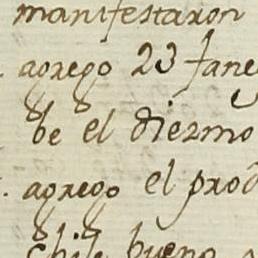 manifestaron
agrego 23 fane
be el diezmo
agrego el prod
chile bueno